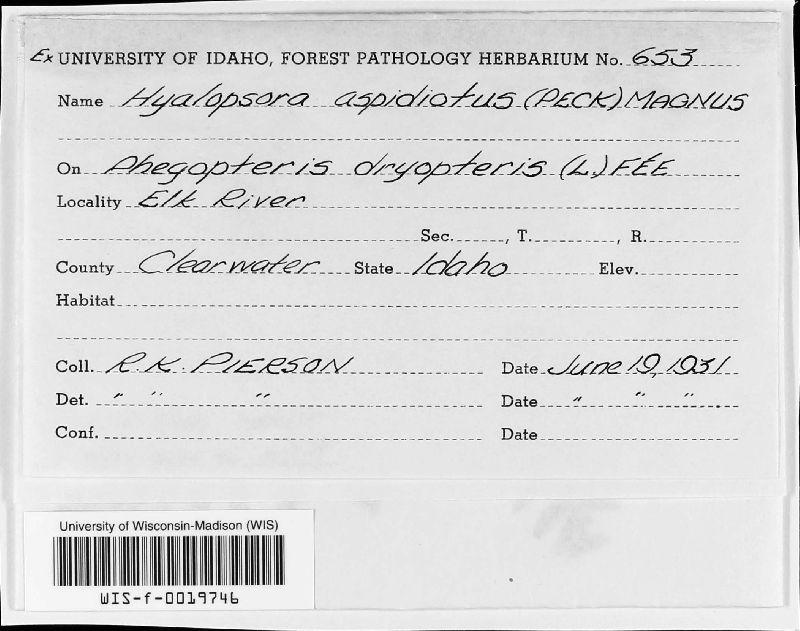 Ex UNIVERSITY OF IDAHO, FOREST PATHOLOGY HERBARIUM No. 653
Name Hyalopsora aspidiotus (PECK) MAGNUS
On Phegopteris dryopteris (L.) FÉE
Locality Elk River
Sec. , T. , R.
County Clearwater State Idaho Elev.
Habitat
Coll. R.K. PIERSON Date June 19, 1931
Det. " " " Date " " "
Conf. Date
University of Wisconsin-Madison (WIS)
WIS-f-0019746